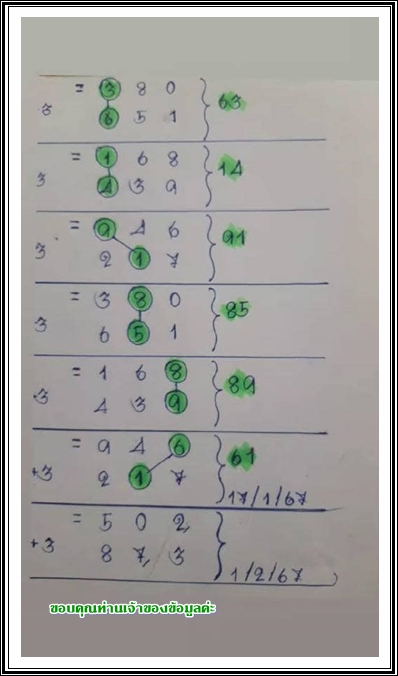 = 3 8 0
3 6 5 1 } 63
= 1 6 8
3 4 3 9 } 14
= 9 4 6
3 2 1 7 } 91
= 3 8 0
3 6 5 1 } 85
= 1 6 8
+3 4 3 9 } 89
= 9 4 6
+3 2 1 7 } 61
17/1/67
= 5 0 2
+3 8 7 3 }
1/2/67
ขอบคุณท่านเจ้าของข้อมูลค่ะ